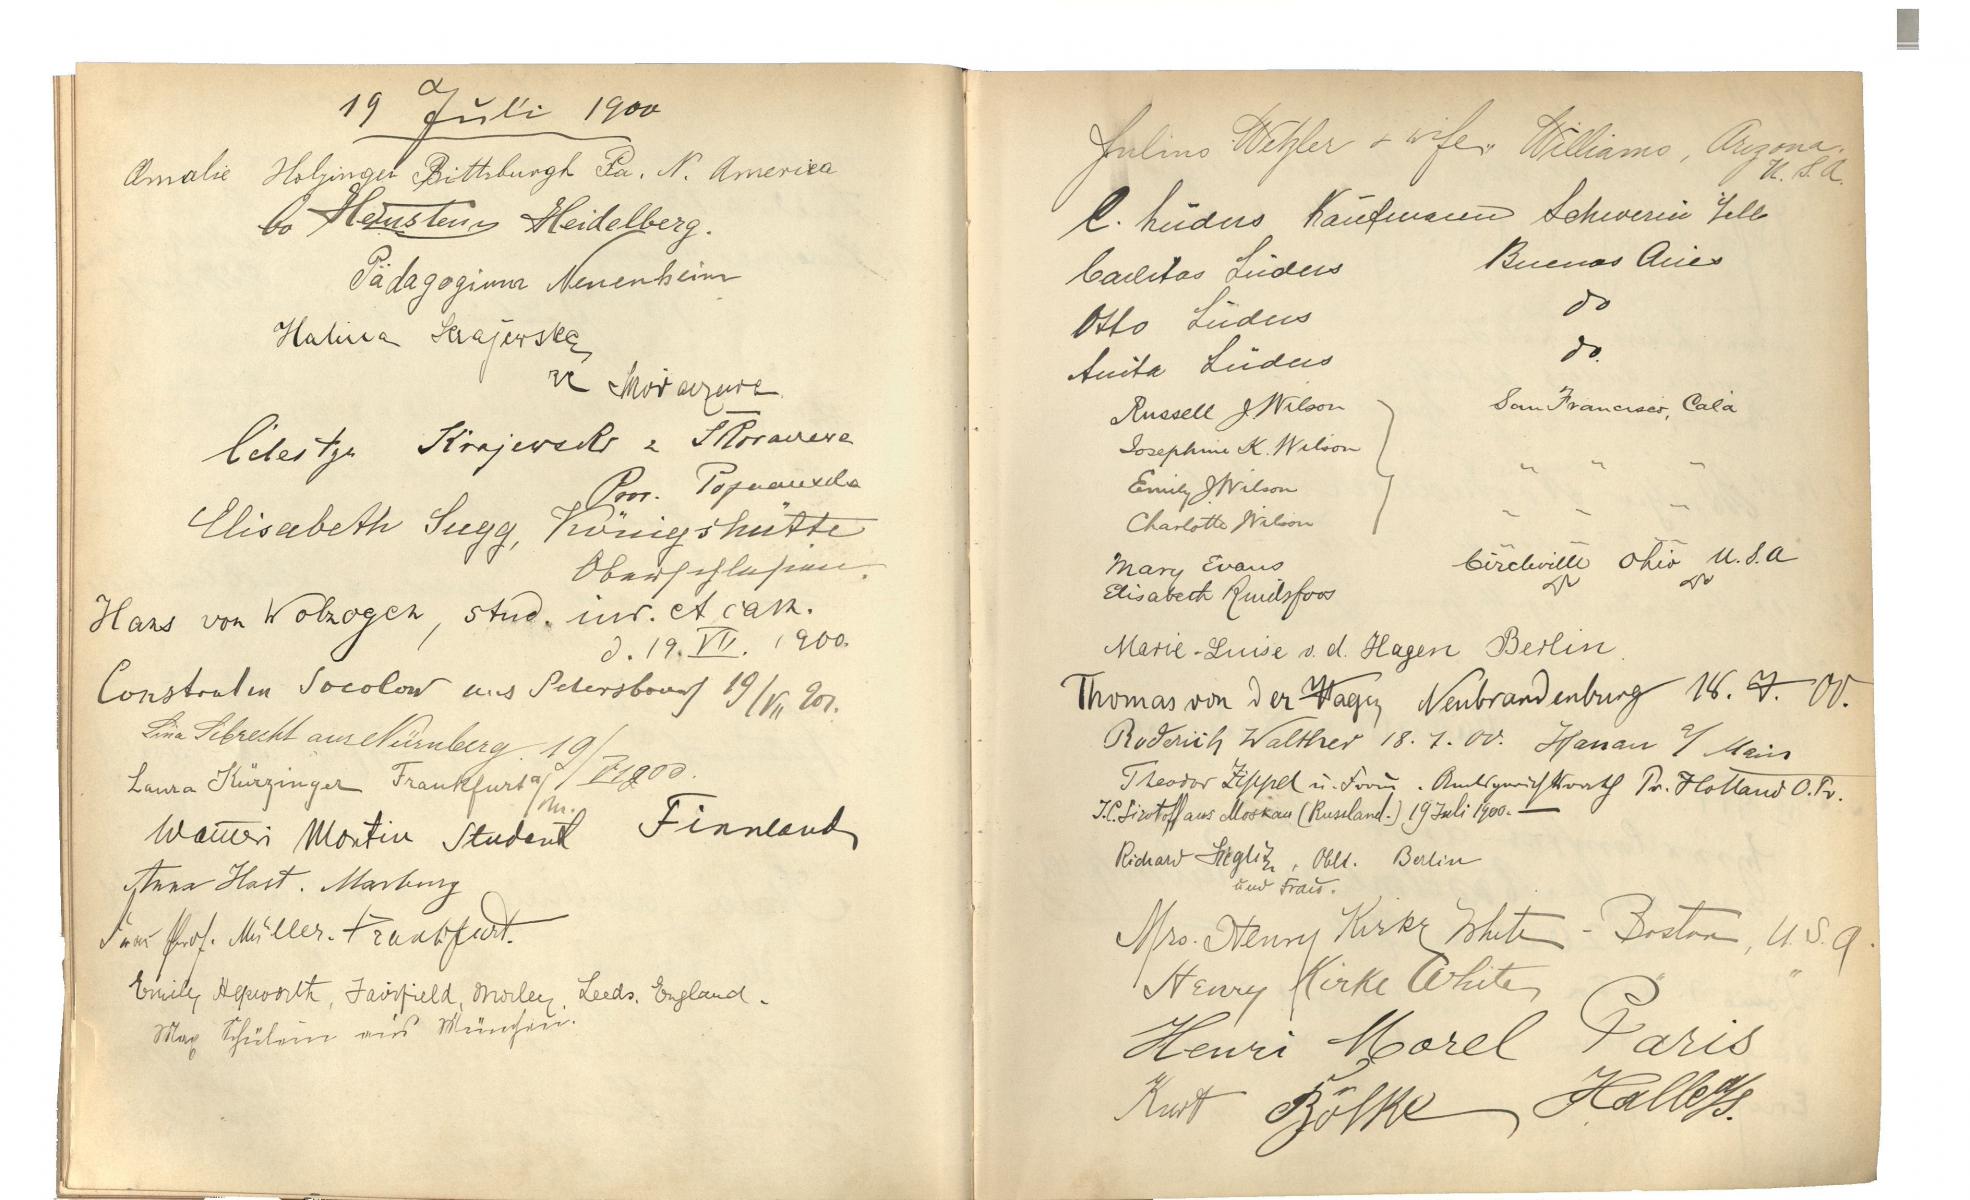 19 Juli 1900
Amalie Holzinger Pittsburgh Pa. N. America
Heidelberg.
Pädagogium Neuenheim
Halina Krajewska
z
Krajewski z
Elisabeth Sugg, Königshütte
Oberschlesien.
Hans von Wolzogen, stud. iur. et cam.
d. 19. VII. 1900.
Constantin Socolow aus Petersbourg 19/VII 900.
Lina Sebrecht aus Nürnberg 19/VII 900.
Laura Kürzinger Frankfurt a/
M.
Martin Student Finnland
Anna Hast. Marburg
Frau Prof. Müller. Frankfurt.
Emily Hepworth, Fairfield, Morley, Leeds. England.
Max Schülein aus München.
Julius Wetzler & wife, Williams, Arizona.
U.S.A.
C. Lüders Kaufmann Schwerin
Carlitos Lüders Buenos Aires
Otto Lüders do
Anita Lüders do.
Russell J. Wilson San Francisco, Cala
Josephine K. Wilson " " "
Emily J. Wilson
Charlotte Wilson " " "
Mary Evans Circleville Ohio U.S.A
Elisabeth Ruidsfoos " "
Marie-Luise v. d. Hagen Berlin
Thomas von der Hagen Neubrandenburg 18. 7. 00.
Roderich Walther 18. 7. 00. Hanau a/Main
Theodor Zippel u. Frau. Amtsgerichtsrath Pr. Holland O. Pr.
aus Moskau (Russland.) 19 Juli 1900. —
Richard Oblt. Berlin
und Frau.
Mrs. Henry Kirke White - Boston, U.S.A.
Henry Kirke White " "
Henri Morel Paris
Kurt Bölke Halle a/S.